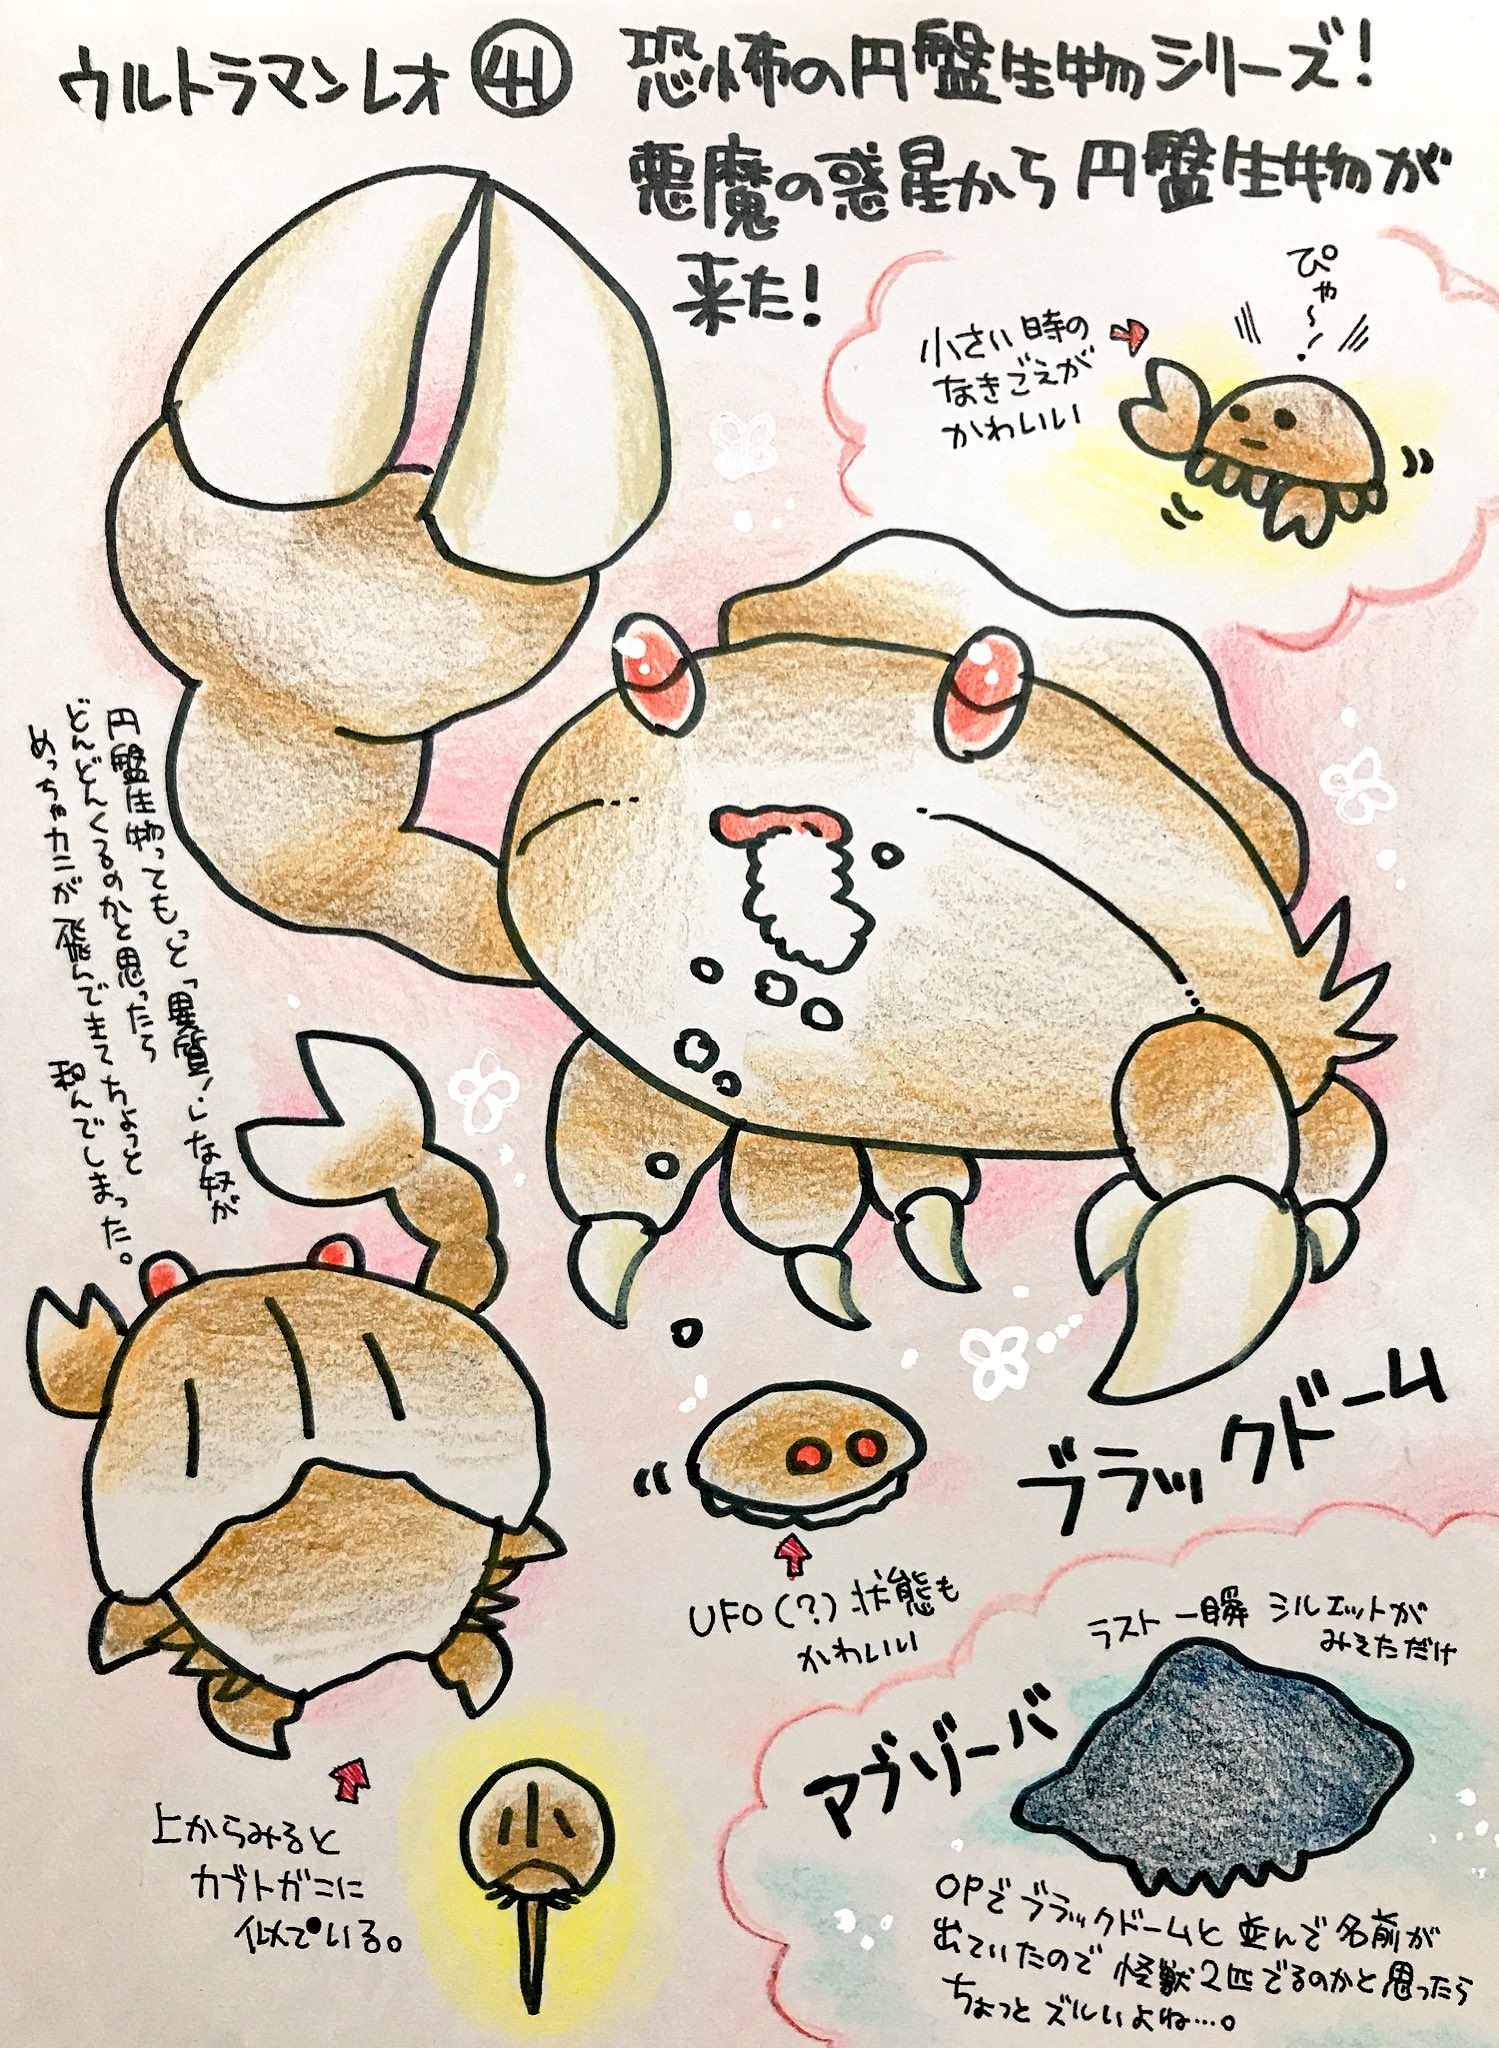 ウルトラマンレオ 41
恐怖の円盤生物シリーズ!
悪魔の惑星から円盤生物が
来た!
ぴゃ〜!
小さい時の
なきごえが
かわいい
円盤生物ってもっと「異質!」な奴が
どんどんくるのかと思ったら
めっちゃカニが飛んできてちょっと
和んでしまった。
ブラックドーム
UFO(?)状態も
かわいい
上からみると
カブトガニに
似ている。
小
ラスト一瞬シルエットが
みえただけ
アブゾーバ
OPでブラックドームと並んで名前が
出ていたので怪獣2匹でるのかと思ったら
ちょっとズルいよね…。